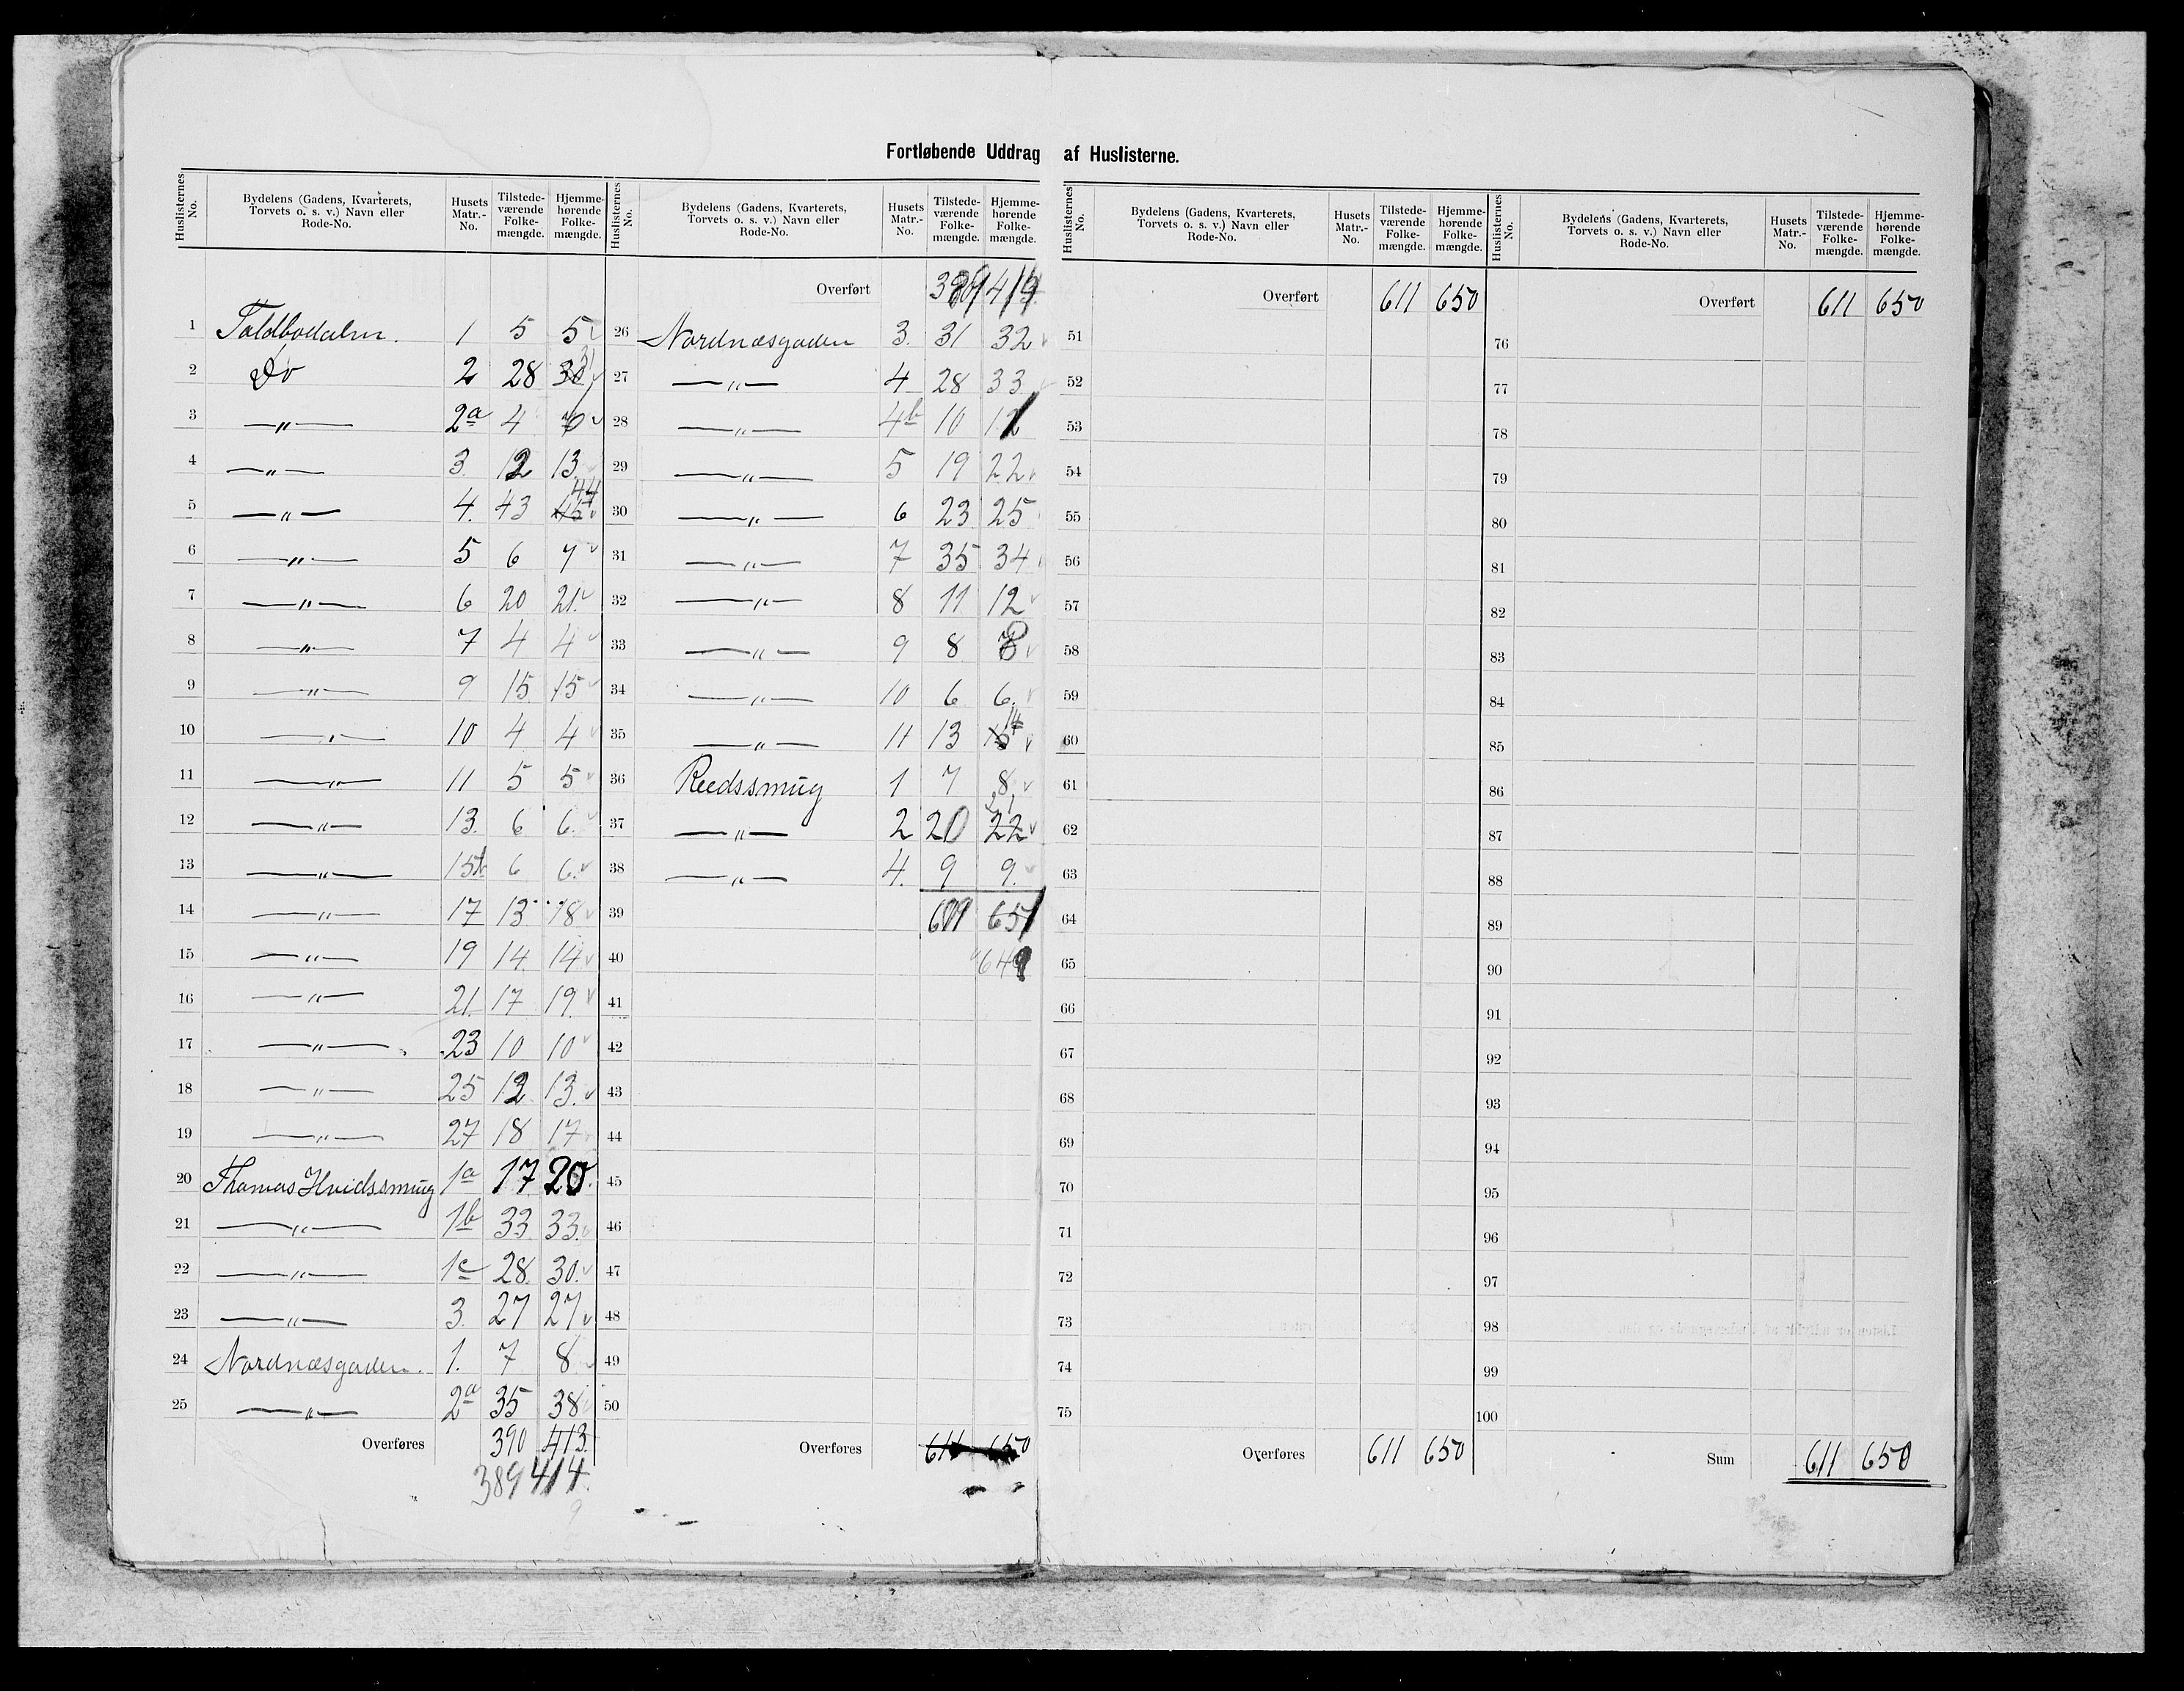 Fortløbende Uddrag af Huslisterne.
Huslisternes No. Bydelens (Gadens, Kvarterets, Torvets o. s. v.) Navn eller Rode-No. Husets Matr.-No. Tilstede-værende Folke-mængde. Hjemme-hørende Folke-mængde.
1 Toldbodalm. 1 5 5
2 Do 2 28 30 31
3 —"— 2a 4
4 —"— 3. 12 13
5 —"— 4. 43 45 44
6 —"— 5 6 7
7 —"— 6 20 21.
8 —"— 7 4 4
9 —"— 9 15 15
10 —"— 10 4 4
11 —"— 11 5 5
12 —"— 13. 6 6.
13 —"— 6 6.
14 —"— 17 13 18
15 —"— 19 14 14
16 —"— 21. 17 19.
17 —"— 23 10 10
18 —"— 25 12 13.
19 —"— 27 18 17
20 Thomas Hvidssmug 1a 17 20.
21 —"— 1b 33 33.
22 —"— 1c 28. 30.
23 —"— 3. 27 27
24 Nordnæsgaden. 1. 7 8
25 —"— 2a 35 38
Overføres 390 413.
389 414.
Huslisternes No. Bydelens (Gadens, Kvarterets, Torvets o. s. v.) Navn eller Rode-No. Husets Matr.-No. Tilstede-værende Folke-mængde. Hjemme-hørende Folke-mængde.
Overført
26 Nordnæsgaden 3. 31 32
27 —"— 4 28 33
28 —"— 4b 10
29 —"— 5 19 22
30 —"— 6 23 25
31 —"— 7 35 34
32 —"— 8 11 12
33 —"— 9 8
34 —"— 10 6 6.
35 —"— 11 13 14
36 Reedssmug 1 7 8
37 —"— 2 20 22
38 —"— 4. 9 9.
39 651
40 649
41
42
43
44
45
46
47
48
49
50
Overføres 611 650
Huslisternes No. Bydelens (Gadens, Kvarterets, Torvets o. s. v.) Navn eller Rode-No. Husets Matr.-No. Tilstede-værende Folke-mængde. Hjemme-hørende Folke-mængde.
Overført 611 650
51
52
53
54
55
56
57
58
59
60
61
62
63
64
65
66
67
68
69
70
71
72
73
74
75
Overføres 611 650
Huslisternes No. Bydelens (Gadens, Kvarterets, Torvets o. s. v.) Navn eller Rode-No. Husets Matr.-No. Tilstede-værende Folke-mængde. Hjemme-hørende Folke-mængde.
Overført 611 650
76
77
78
79
80
81
82
83
84
85
86
87
88
89
90
91
92
93
94
95
96
97
98
99
100
Sum 611 650